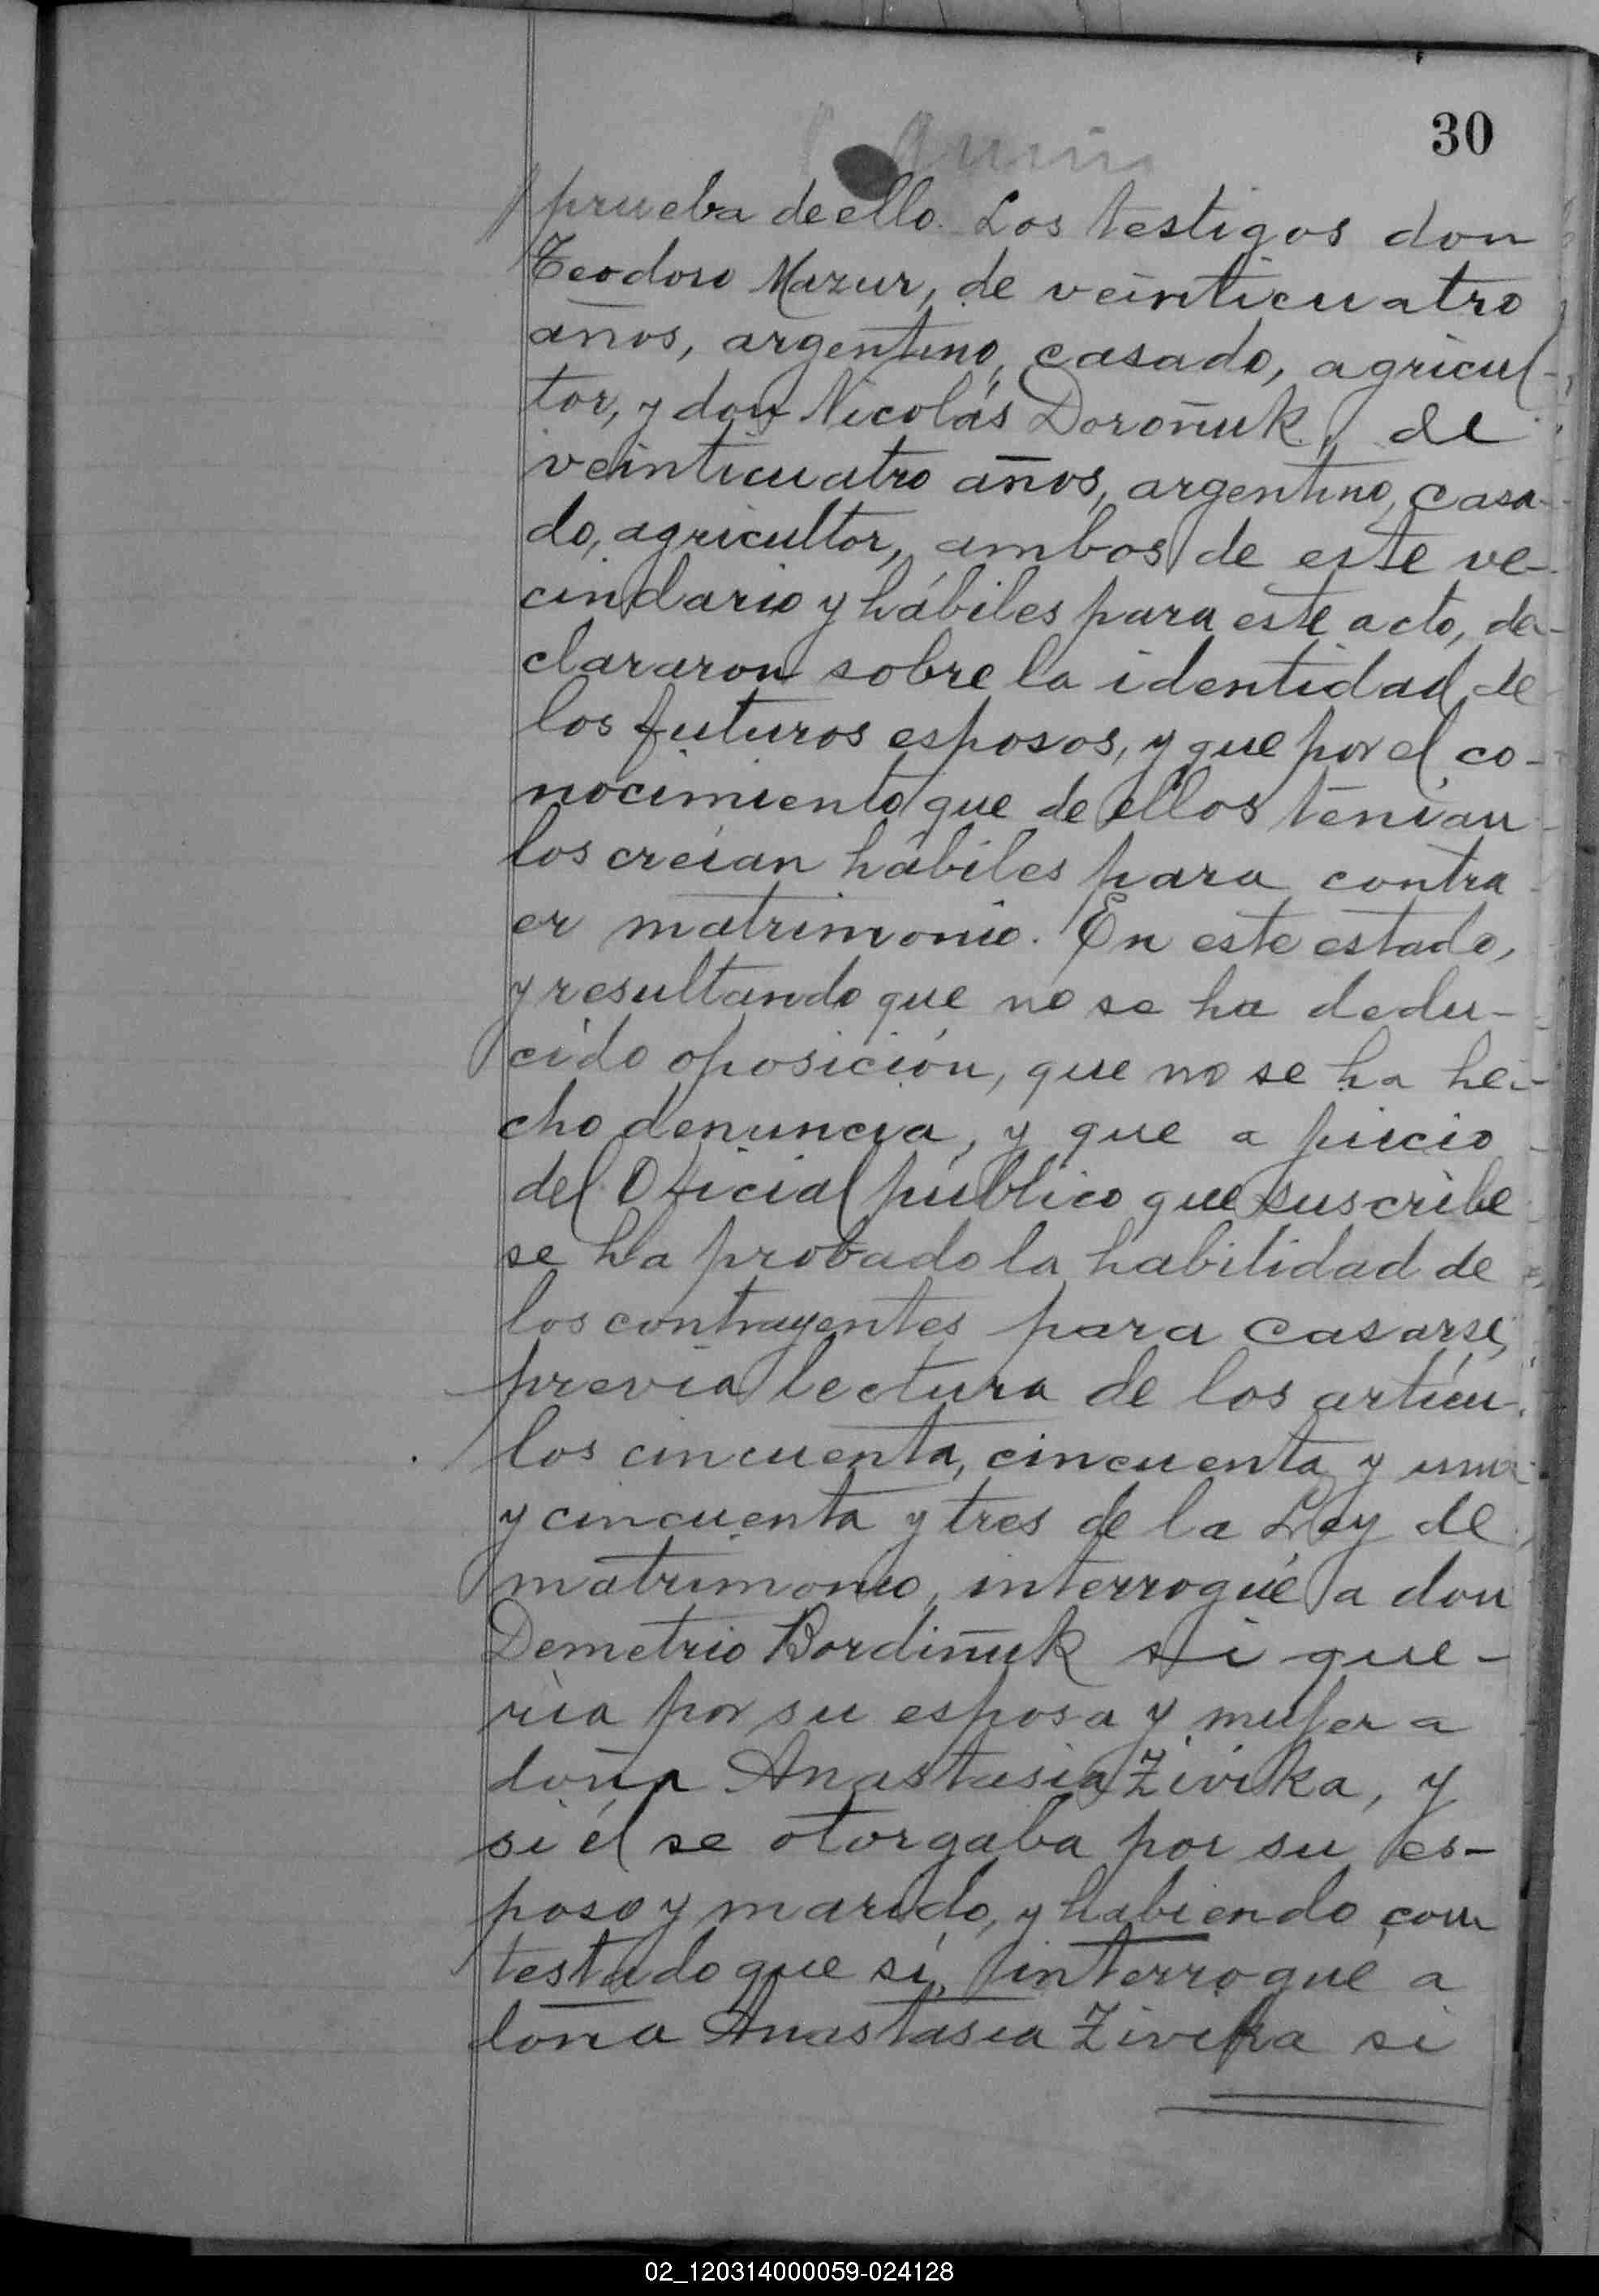 30
prueba de ello. Los testigos don
Teodoro Mazur, de veinticuatro
años, argentino, casado, agricul-
tor, y don Nicolás Doroñuk, de
veinticuatro años, argentino, casa-
do, agricultor, ambos de este ve-
cindario y hábiles para este acto, de-
clararon sobre la identidad de
los futuros esposos, y que por el co-
nocimiento que de ellos tenían
los creían hábiles para contra-
er matrimonio. En este estado,
y resultando que no se ha dedu-
cido oposición, que no se ha he-
cho denuncia, y que a juicio
del Oficial público que suscribe
se ha probado la habilidad de
los contrayentes para casarse,
previa lectura de los artícu-
los cincuenta, cincuenta y uno
y cincuenta y tres de la Ley de
matrimonio, interrogué a don
Demetrio Bordiñuk si que-
ría por su esposa y mujer a
doña Anastasia Zivika, y
si él se otorgaba por su es-
poso y marido, y habiendo con
testado que sí, interrogué a
doña Anastasia Zivika si
02_120314000059-024128